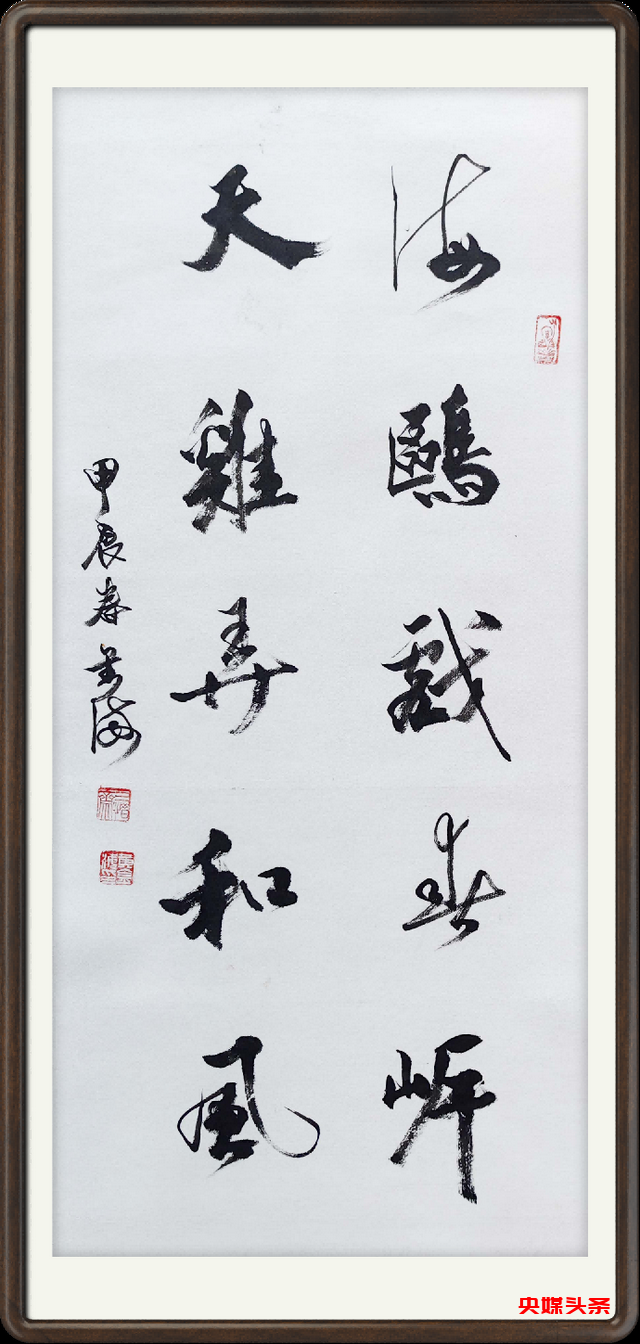 海鷗戲春岍
天雞弄和風
甲辰春 海
央媒头条